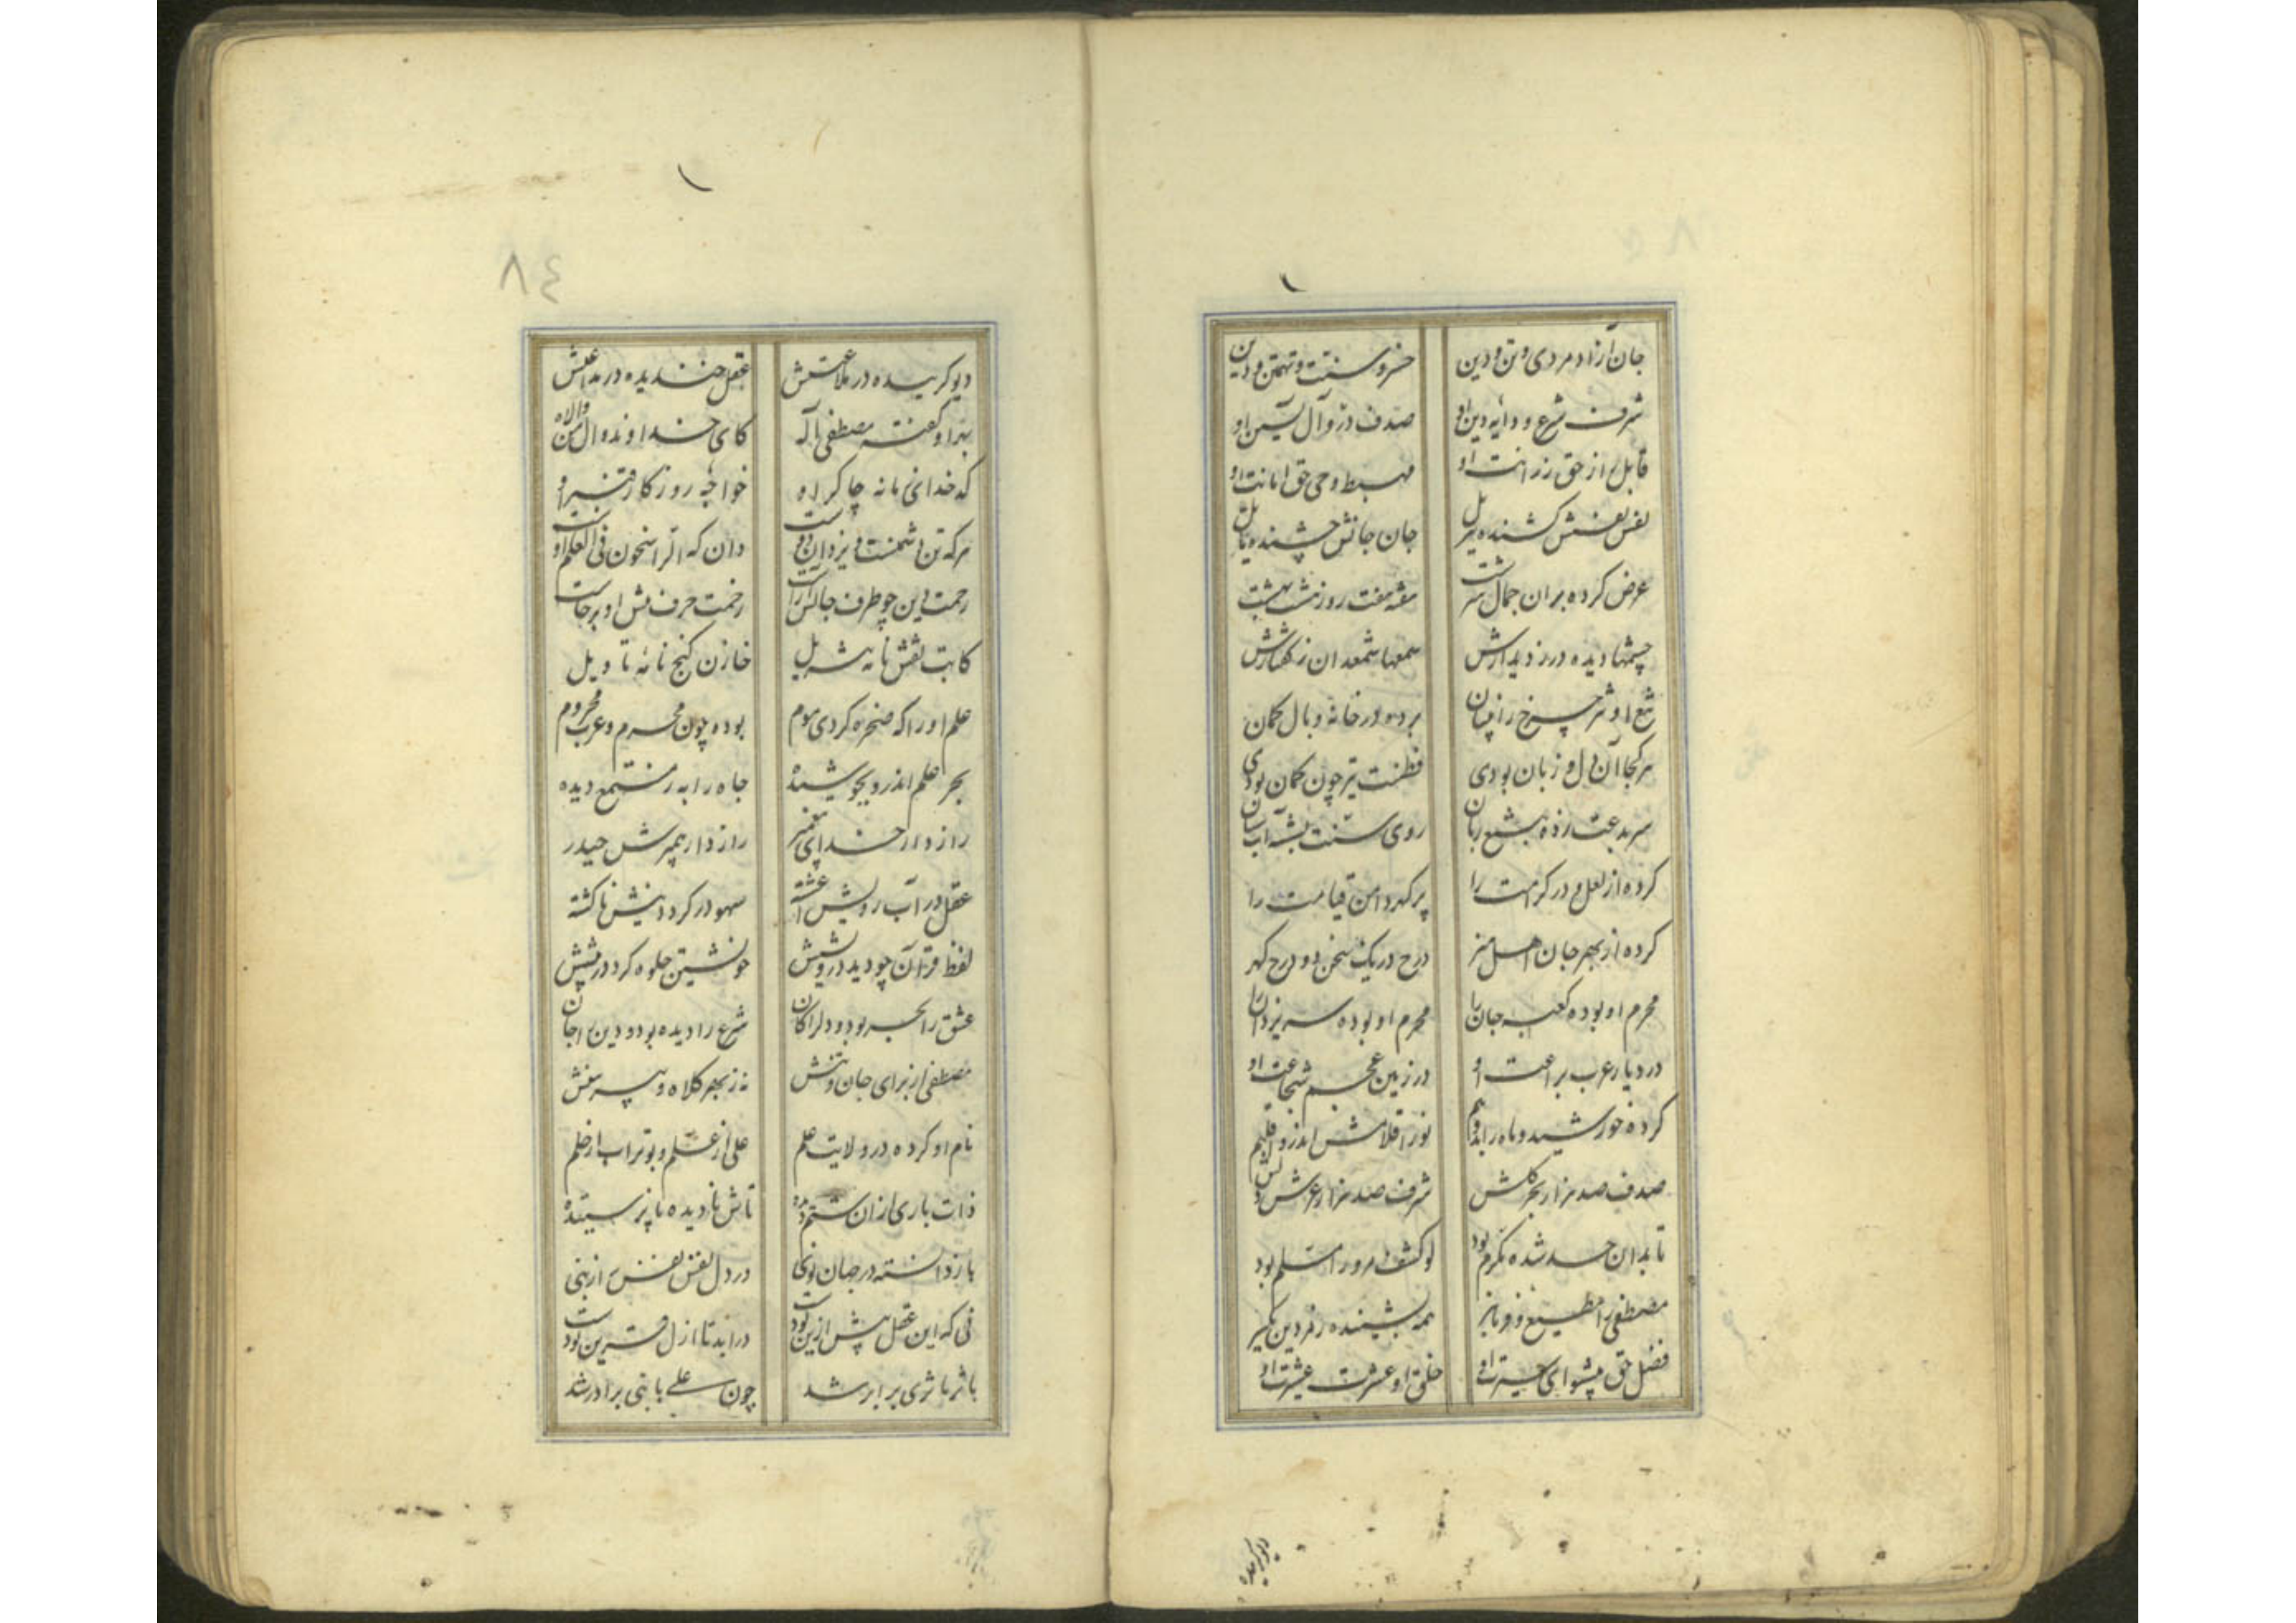 جان آزاد مردی و تن و دین
خسرو سنت و تهمتن دین
شرف شرع و دایه دین او
صدف در و آل یسین او
قابل از حق رزانت او
مهبط وحی حق امانت او
نفس نفسش کشنده بر
جان جانش چشنده
عرض کرده بران جمال سرشت
هفته هفت روز هشت بهشت
چشمها دیده در ز دیدارش
سمعها شمعدان ز گفتارش
تیغ او شر چرخ را پیکان
برده در خانه وبال کمان
هر کجا آن دل و زبان بودی
فطنت تیر چون کمان بودی
سر بدعت زده بتیغ زبان
روی سنت بشسته آب سنان
کرده از لعل و در کرامت را
پر گهر دامن قیامت را
کرده از بهر جان اهل هنر
درج در یک سخن دو درج گهر
محرم او بوده کعبه جان را
محرم او بوده سر یزدان را
در دیار عرب براعت او
در زمین عجم شجاعت او
کرده خورشید و ماه را بدو نیم
نور اقلامش اندر اقلیم
صدف صد هزار بحر کلش
شرف صد هزار عرش دلش
تا بدان حد شده مکرم بود
لو کشف مرو را مسلم بود
مصطفی را مطیع و فرمانبر
همه بشنیده رمز دین یکسر
فضل حق پیشوای سیرت او
خلق او عشرت عشیرت او
دیو گریده
١
٨٤
دیو گرینده در ملاعبتش
عقل خندیده در مداعبتش
بهر او گفته مصطفی باله
کای خداوند وال من والاه
کدخدای زمانه چاکر او
خواجه روزگار قنبر او
هر که تن دشمنست و یزدان دوست
دان که الراسخون فی العلم اوست
رحمت دین چو ظرف جانش آراست
زحمت حرف پیش او برخاست
کاتب نقش نامه تنزیل
خازن گنج نامه تاویل
علم او را که صخره کردی موم
بوده چون محرم و عرب محروم
بحر علم اندرو بجوشیده
چاه را به ز مستمع دیده
رازدار خدای پیغمبر
رازدار پیمبرش حیدر
عقل در آب رویش آغشته
سهو در گرد دینش ناگشته
لفظ قرآن چو دید درویشش
خویشتن جلوه کرد در پیشش
عشق را بحر بود و دل را کان
شرع را دیده بود و دین را جان
مصطفی از برای جان و تنش
نه ز بهر کلاه و پیرهنش
نام او کرده در ولایت علم
علی از علم و بوتراب از حلم
ذات باری ازان ستم دیده
تاش نادیده ناپرستیده
باز دانسته در جهان نوی
در دل نفس نفس از نبی
نی که این عقل پیش ازین بودست
در ابد تا ازل قرین بودست
با ثریا ثری برابر شد
چون علی با نبی برادر شد